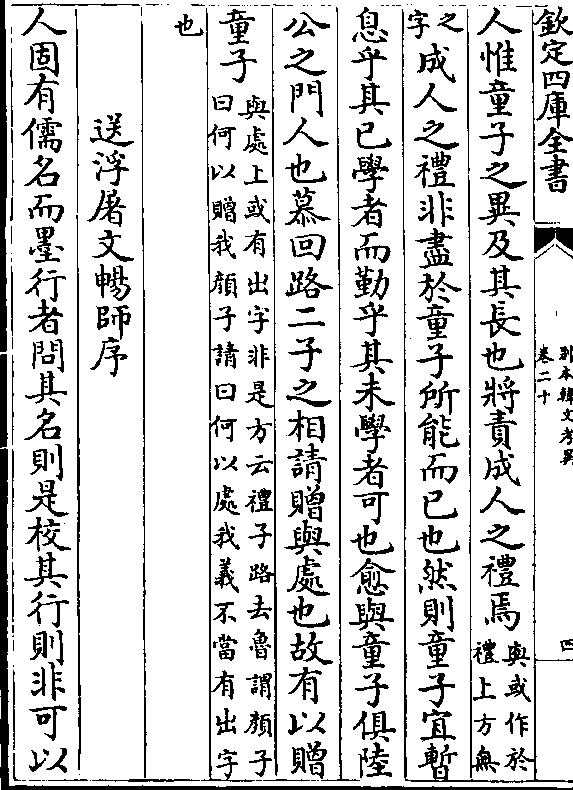 欽定四庫全書
別本韓文考異
卷二十
四
人惟童子之異及其長也將責成人之禮焉
與或作於
禮上方無
之
字
成人之禮非盡於童子所能而已也然則童子宜暫
息乎其已學者而勤乎其未學者可也愈與童子俱陸
公之門人也慕回路二子之相請贈與處也故有以贈
童子
與處上或有出字非是方云禮子路去魯謂顏子
曰何以贈我顔子請曰何以處我義不當有出字
也
送浮屠文暢師序
人固有儒名而墨行者問其名則是校其行則非可以